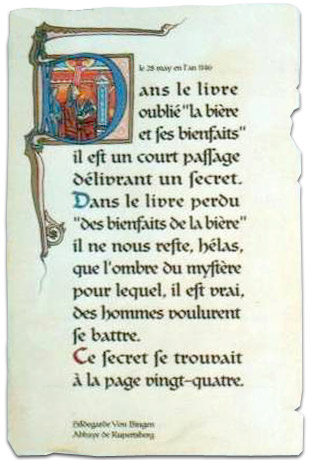 le 28 may en l'an 1146
Dans le livre
oublié "la bière
et ſes bienfaits"
il eſt un court paſſage
délivrant un ſecret.
Dans le livre perdu
"des bienfaits de la bière"
il ne nous reſte, hélas,
que l'ombre du myſtère
pour lequel, il eſt vrai,
des hommes voulurent
ſe battre.
Ce ſecret ſe trouvait
à la page vingt-quatre.
Hildegarde Von Bingen
Abbaye de Rupertsberg